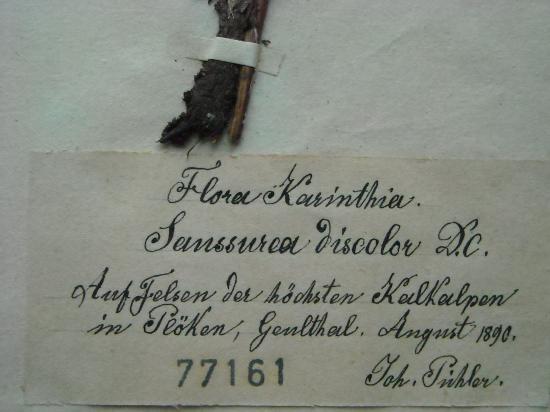 Flora Karinthia.
Saussurea discolor D.C.
Auf Felsen der höchsten Kalkalpen
in Plöken, Geulthal. August 1890.
77161 Joh. Pichler.